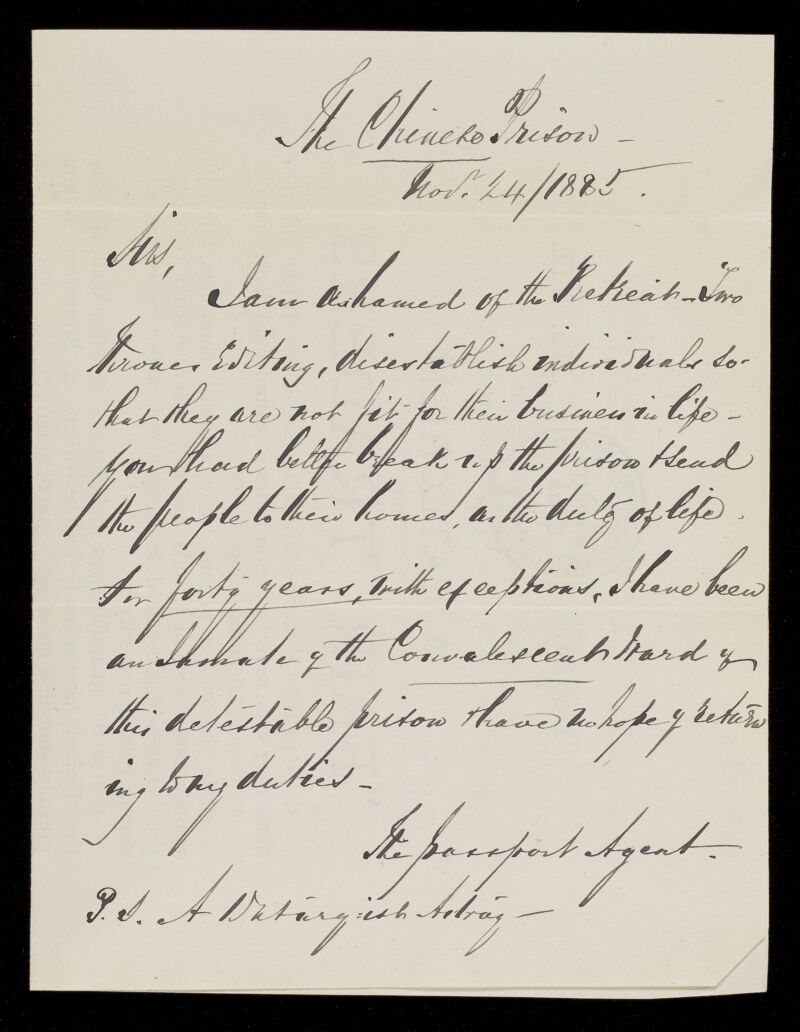 The Chinese Prison –
Novr. 24/1885.
Sirs,
I am ashamed of the Retreat – Two
Thrones Editing, disestablish individuals so
that they are not fit for their business in life –
you had better break up the prison & send
the people to their homes, as the duty of life.
For forty years, with exceptions, I have been
an Inmate of the Convalescent Ward of
this detestable prison & have no hope of return
ing to my duties –
The passport Agent.
P. S. A